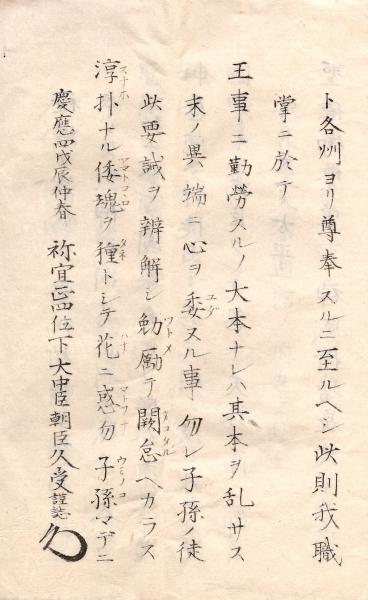 ト各州ヨリ尊奉スルニ至ルヘシ此則我職
掌ニ於テ
王事ニ勤勞スルノ大本ナレハ其本ヲ乱サス
末ノ異端ニ心ヲ委ヌル事勿レ子孫ノ徒
此要誠ヲ辨解シ勉励テ闕怠ヘカラス
淳朴ナル倭魂ヲ種トシテ花ニ惑勿子孫マデニ
慶應四戊辰仲春
祢宜正四位下大中臣朝臣久受謹誌